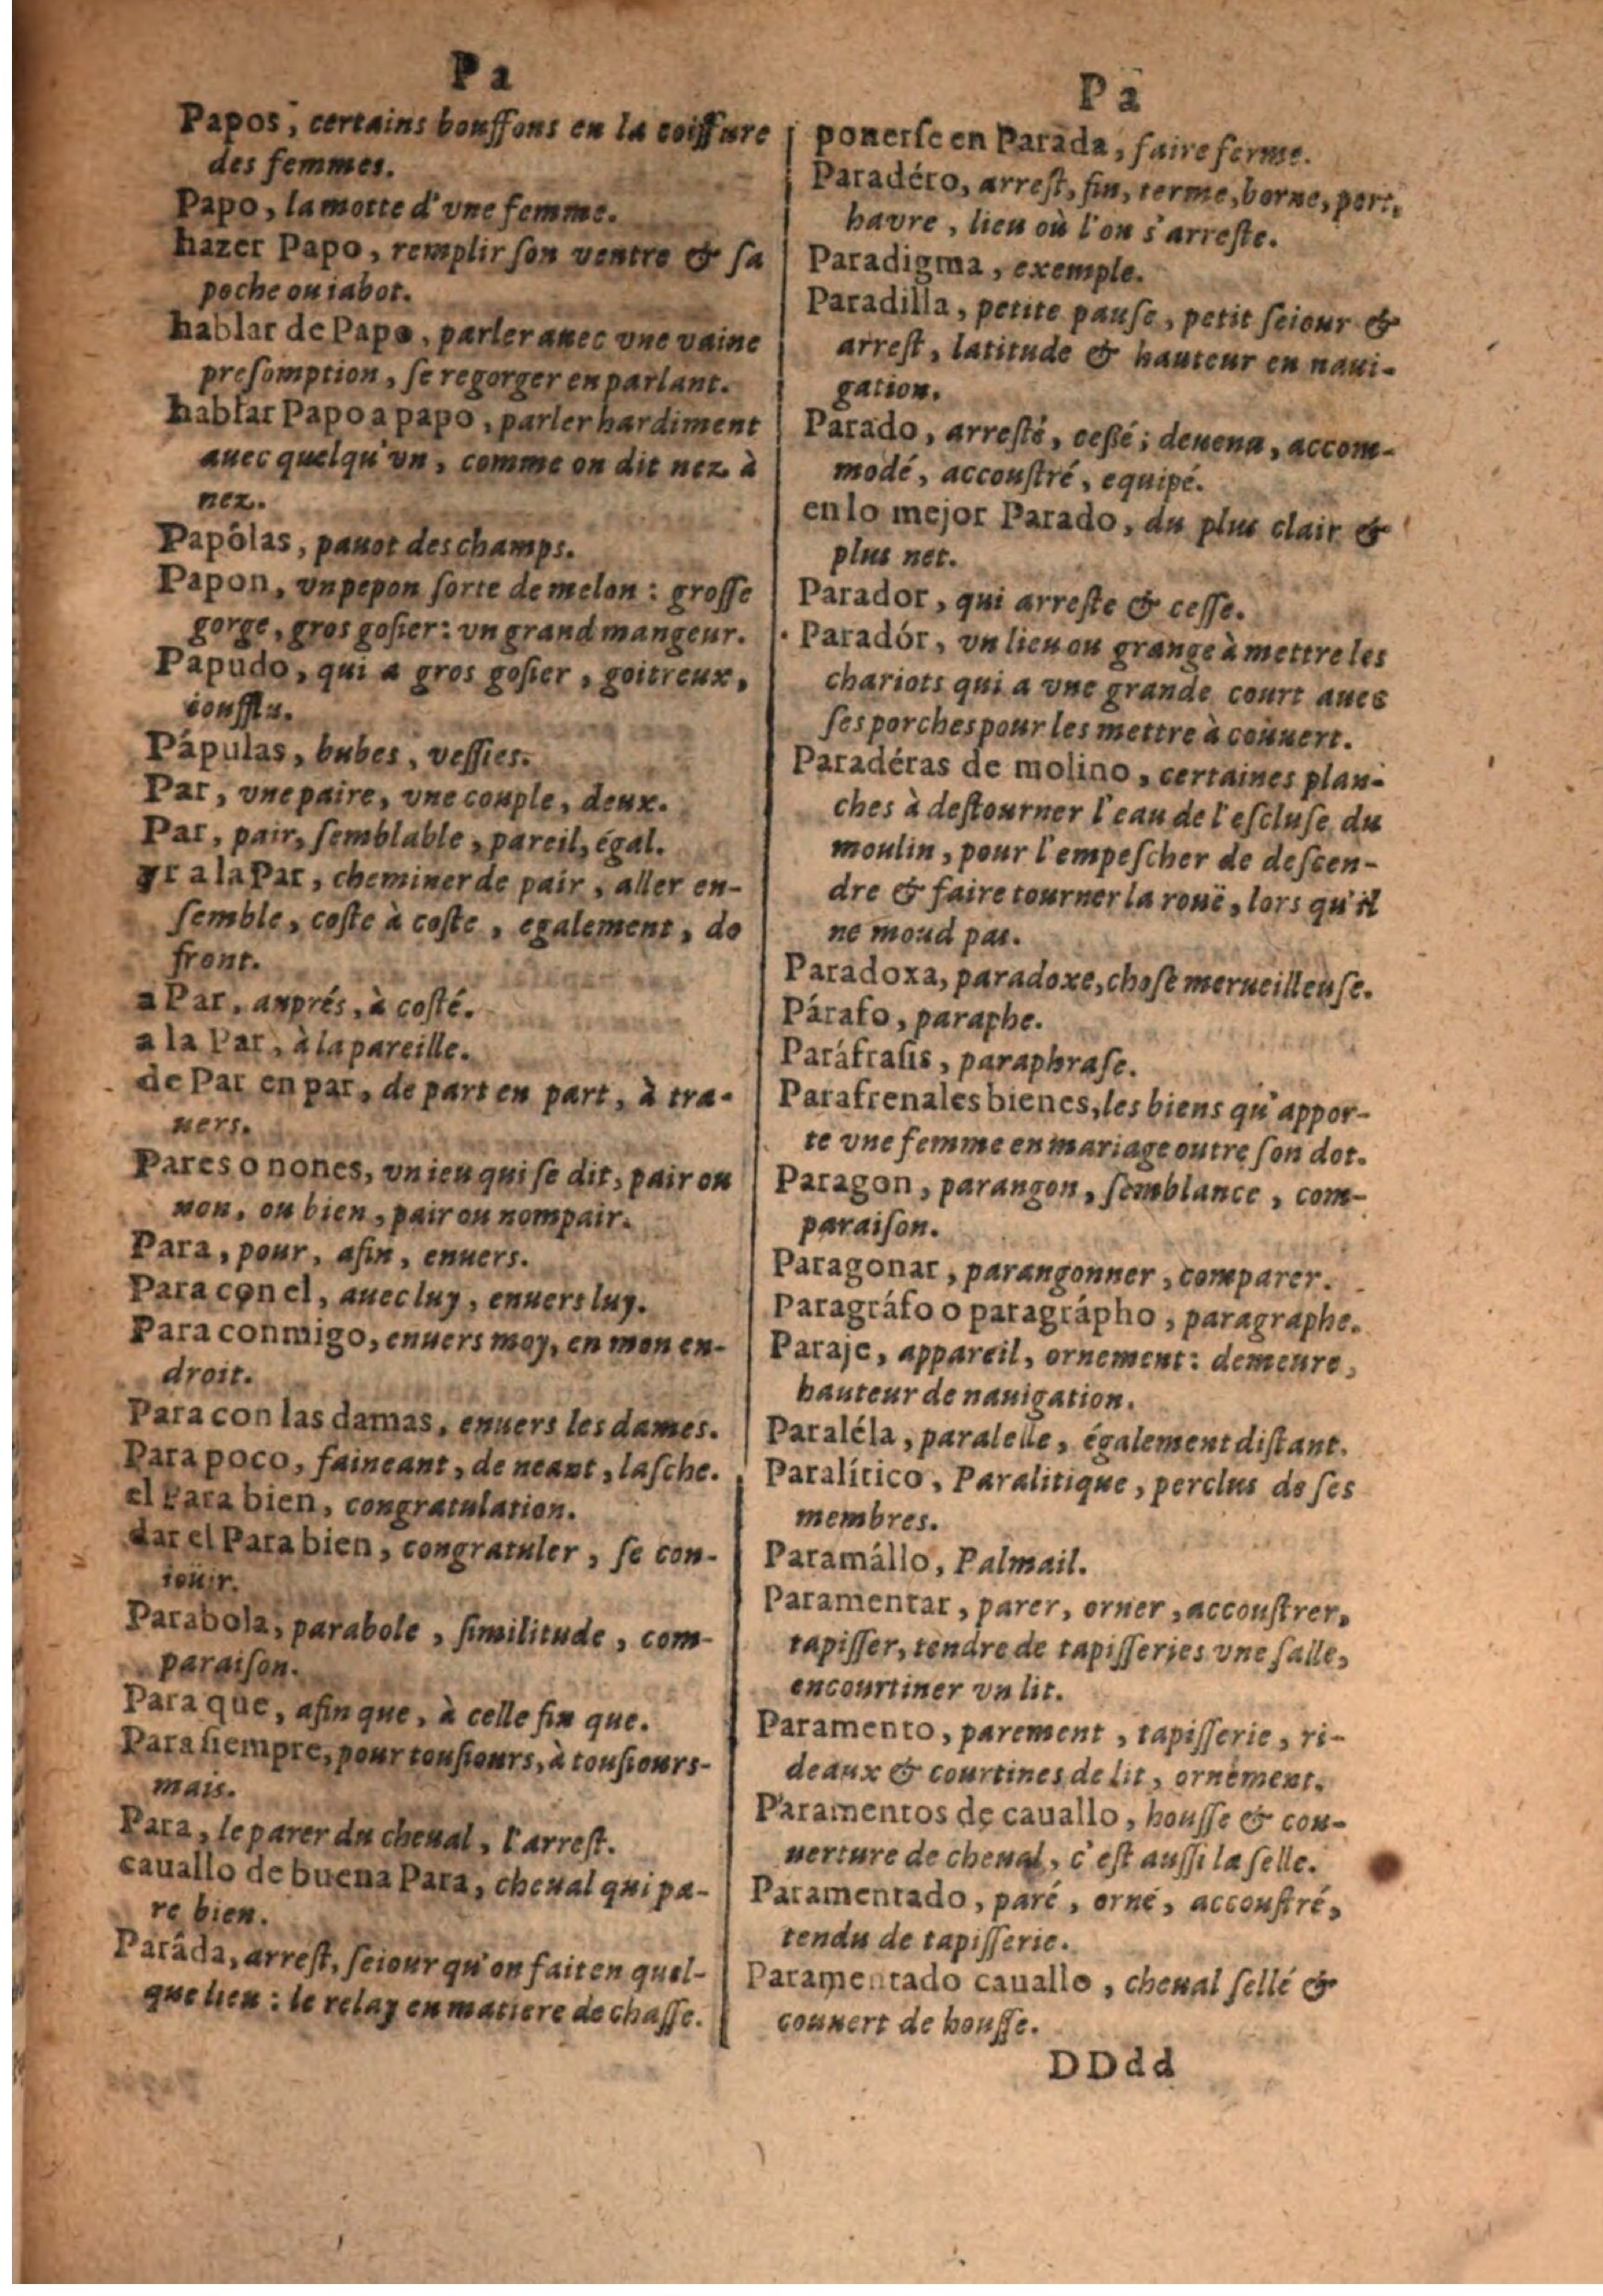 Pa
Papos, certains bouffons en la coiffure
des femmes.
Papo, la motte d'vne femme.
hazer Papo, remplir ſon ventre & ſa
poche ou iabot.
hablar de Papo, parler auec vne vaine
preſomption, ſe regorger en parlant.
hablar Papo a papo, parler hardiment
auec quelqu'vn, comme on dit nez à
nez.
Papôlas, pauot des champs.
Papon, vn pepon ſorte de melon: groſſe
gorge, gros goſier: vn grand mangeur.
Papudo, qui a gros goſier, goitreux,
ioufflu.
Pápulas, bubes, veſſies.
Par, vne paire, vne couple, deux.
Par, pair, ſemblable, pareil, égal.
yr a la Par, cheminer de pair, aller en-
ſemble, coſte à coſte, egalement, de
front.
a Par, auprés, à coſté.
a la Par, à la pareille.
de Par en par, de part en part, à tra-
uers.
Pares o nones, vn ieu qui ſe dit, pair ou
non, ou bien, pair ou nompair.
Para, pour, afin, enuers.
Para con el, auec luy, enuers luy.
Para conmigo, enuers moy, en mon en-
droit.
Para con las damas, enuers les dames.
Para poco, faineant, de neant, laſche.
el Para bien, congratulation.
dar el Para bien, congratuler, ſe con-
ioüir.
Parabola, parabole, ſimilitude, com-
paraiſon.
Para que, afin que, à celle fin que.
Para ſiempre, pour touſiours, à touſiours-
mais.
Para, le parer du cheual, l'arreſt.
cauallo de buena Para, cheual qui pa-
re bien.
Parâda, arreſt, ſeiour qu'on fait en quel-
que lieu: le relay en matiere de chaſſe.
Pa
ponerſe en Parada, faire ferme.
Paradéro, arreſt, fin, terme, borne, port,
havre, lieu où l'on s'arreſte.
Paradigma, exemple.
Paradilla, petite pauſe, petit ſeiour &
arreſt, latitude & hauteur en naui-
gation.
Parado, arreſté, ceßé; deuenu, accom-
modé, accouſtré, equipé.
en lo mejor Parado, du plus clair &
plus net.
Parador, qui arreſte & ceſſe.
Paradór, vn lieu ou grange à mettre les
chariots qui a vne grande court auec
ſes porches pour les mettre à couuert.
Paradéras de molino, certaines plan-
ches à deſtourner l'eau de l'eſcluſe du
moulin, pour l'empeſcher de deſcen-
dre & faire tourner la rouë, lors qu'il
ne moud pas.
Paradoxa, paradoxe, choſe merueilleuſe.
Párafo, paraphe.
Paráfraſis, paraphraſe.
Parafrenales bienes, les biens qu'appor-
te vne femme en mariage outre ſon dot.
Paragon, parangon, ſemblance, com-
paraiſon.
Paragonar, parangonner, comparer.
Paragráfo o paragrápho, paragraphe.
Paraje, appareil, ornement: demeure,
hauteur de nauigation.
Paraléla, paralelle, également diſtant.
Paralítico, Paralitique, perclus de ſes
membres.
Paramállo, Palmail.
Paramentar, parer, orner, accouſtrer,
tapiſſer, tendre de tapiſſeries vne ſalle,
encourtiner vn lit.
Paramento, parement, tapiſſerie, ri-
deaux & courtines de lit, ornement.
Paramentos de cauallo, houſſe & cou-
uerture de cheual, c'eſt auſſi la ſelle.
Paramentado, paré, orné, accouſtré,
tendu de tapiſſerie.
Paramentado cauallo, cheual ſellé &
couuert de houſſe.
DDdd